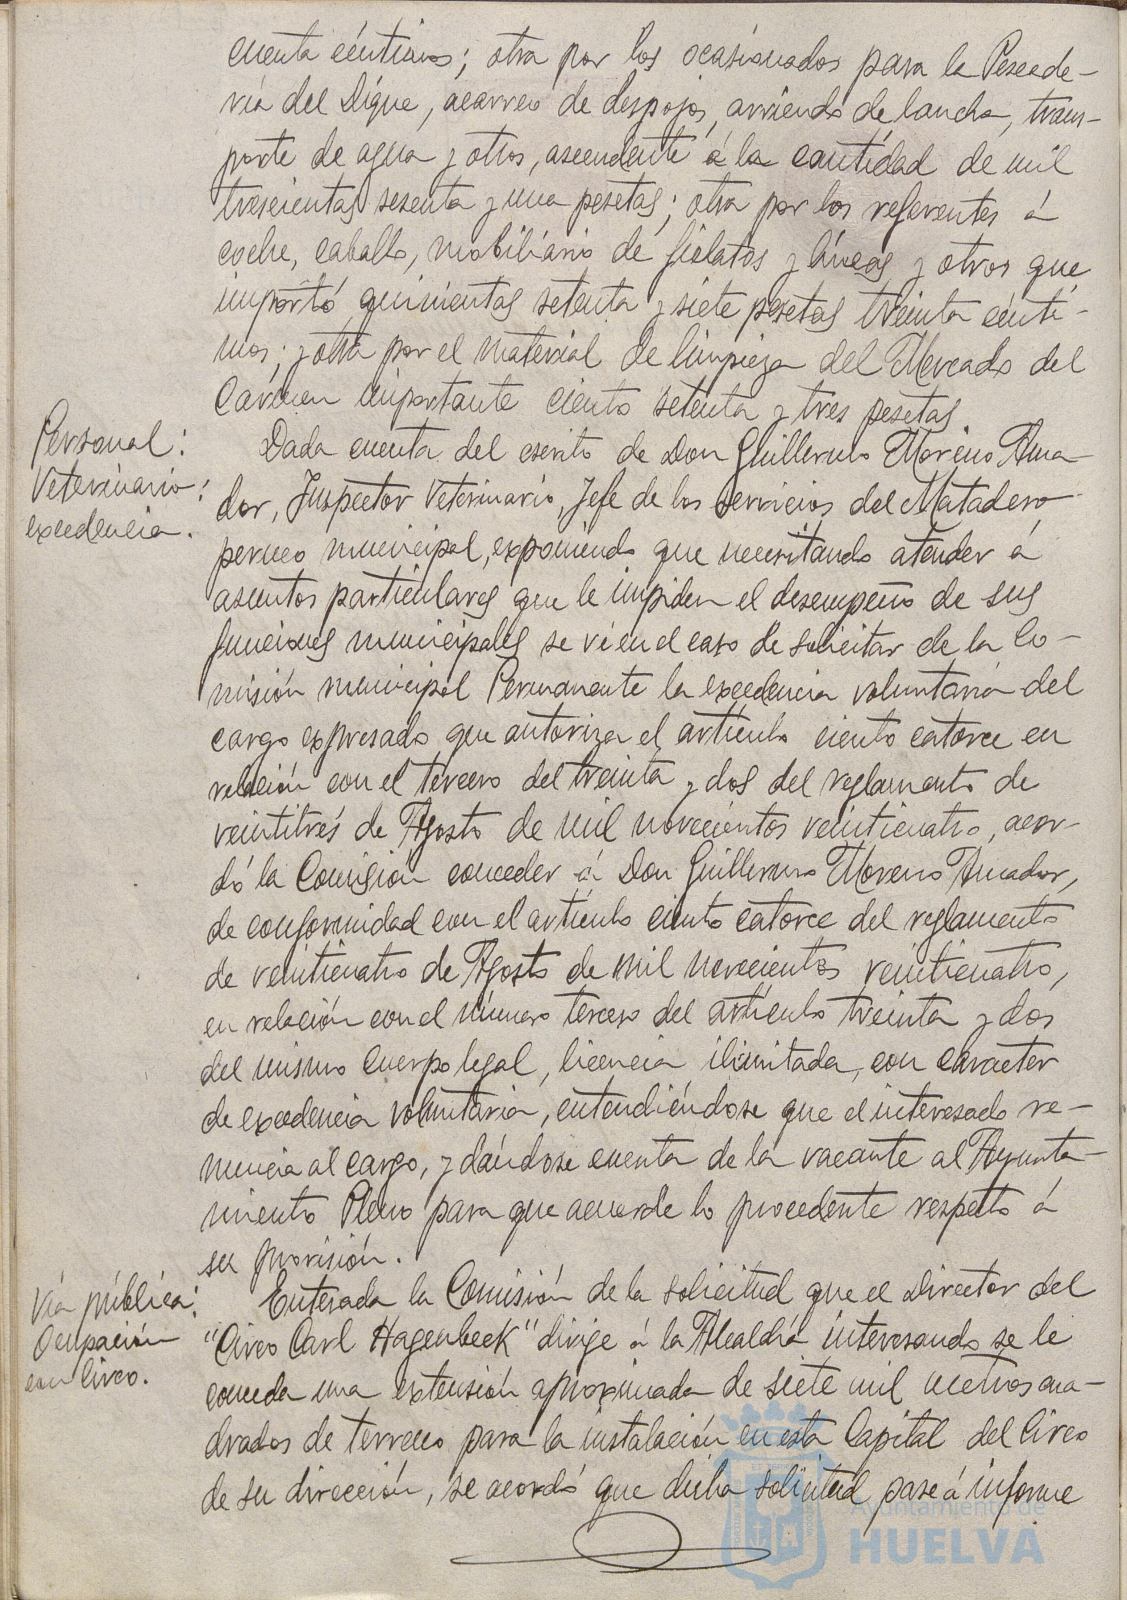 cuenta céntimos; otra por los ocasionados para la Pescade-
ría del Dique, acarreo de despojos, arriendo de lancha, trans-
porte de agua y otros, ascendente á la cantidad de mil
trescientas sesenta y una pesetas; otra por los referentes á
coche, caballo, mobiliario de fielatos y líneas y otros que
importó quinientas setenta y siete pesetas treinta cénti-
mos; y otra por el material de limpieza del Mercado del
Carmen importante ciento setenta y tres pesetas
Personal:
Veterinario:
excedencia.
Dada cuenta del escrito de Don Guillermo Moreno Ama-
dor, Inspector Veterinario, Jefe de los servicios del Matadero
perneo municipal, exponiendo que necesitando atender á
asuntos particulares que le impiden el desempeño de sus
funciones municipales se vé en el caso de solicitar de la Co-
misión municipal Permanente la excedencia voluntaria del
cargo expresado que autoriza el artículo ciento catorce en
relación con el tercero del treinta y dos del reglamento de
veintitrés de Agosto de mil novecientos veinticuatro, acor-
dó la Comisión conceder á Don Guillermo Moreno Amador,
de conformidad con el artículo ciento catorce del reglamento
de veinticuatro de Agosto de mil novecientos veinticuatro,
en relación con el número tercero del artículo treinta y dos
del mismo cuerpo legal, licencia ilimitada, con caracter
de excedencia voluntaria, entendiéndose que el interesado re-
nuncia al cargo, y dándose cuenta de la vacante al Ayunta-
miento Pleno para que acuerde lo procedente respecto á
su provisión.
Vía pública:
Ocupación
con Circo.
Enterada la Comisión de la solicitud que el Director del
"Circo Carl Hagenbeck" dirige á la Alcaldía interesando se le
conceda una extensión aproximada de siete mil metros cua-
drados de terreno para la instalación en esta Capital del Circo
de su dirección, se acordó que dicha solicitud pase á informe
Ayuntamiento de
HUELVA